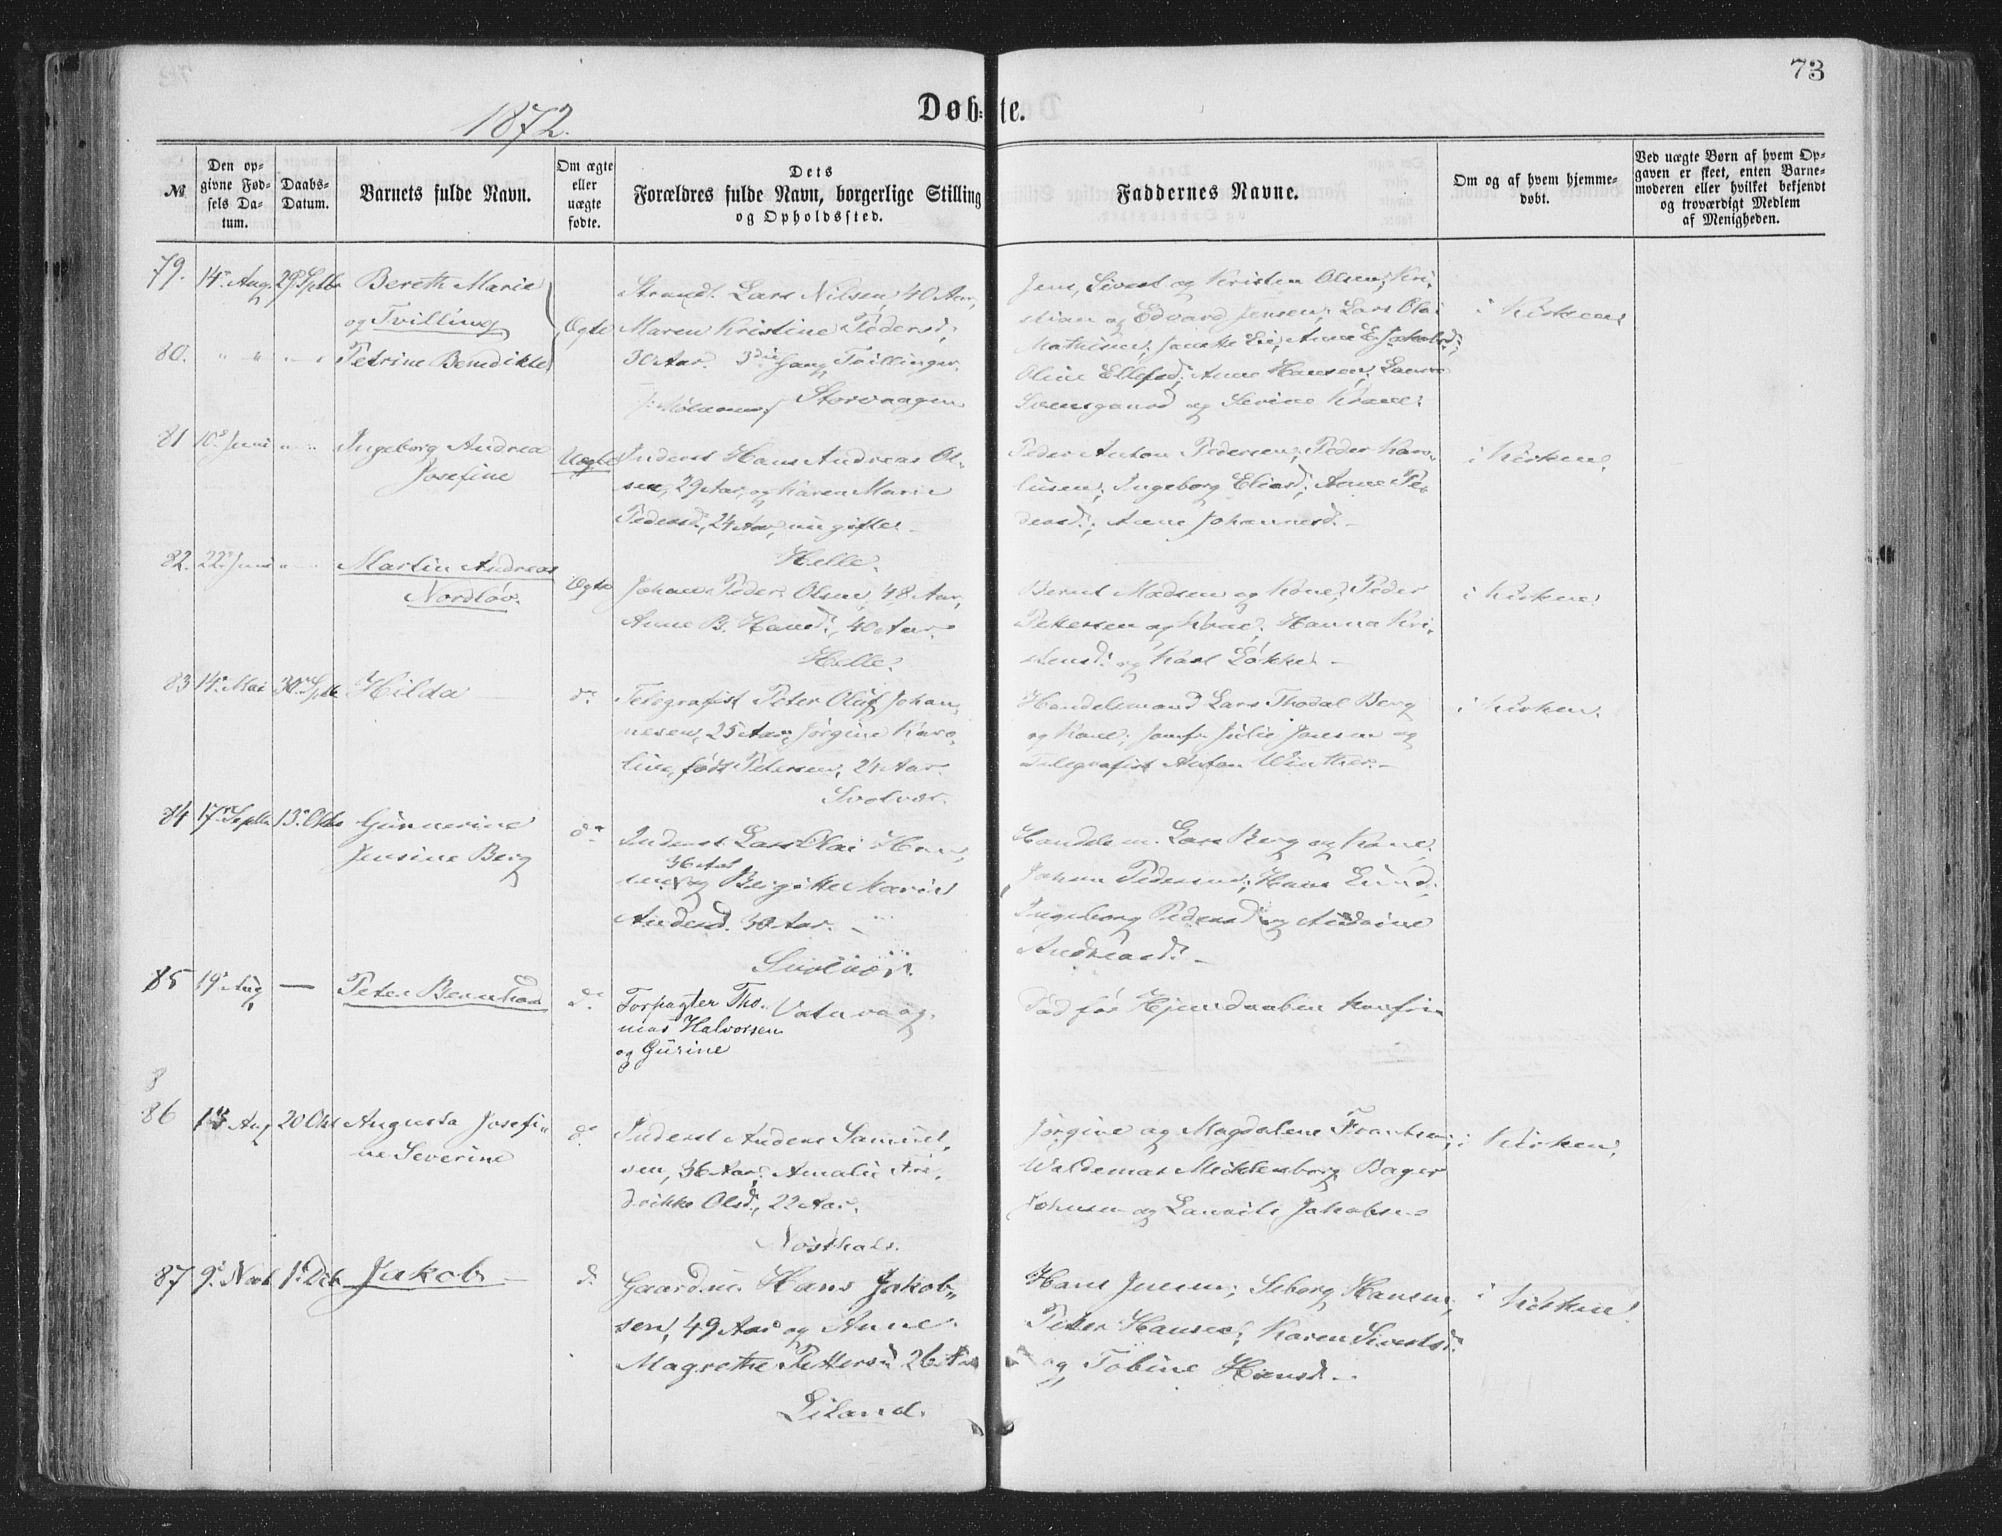 73
Døb- te.
1872.
№
Den opgivne Fødsels Datum.
Daabs-Datum.
Barnets fulde Navn.
Om ægte eller uægte fødte.
Dets Forældres fulde Navn, borgerlige Stilling og Opholdssted.
Faddernes Navne.
Om og af hvem hjemmedøbt.
Ved uægte Børn af hvem Opgaven er skeet, enten Barnemoderen eller hvilket bekjendt og troværdigt Medlem af Menigheden.
79. 14 Aug. 29 Septb Bereth Marie
og Tvilling
80. " " " " Petrine Bendikte
Ægte
Strands. Lars Nilsen 40 Aar,
Maren Kristine Pedersd.
30 Aar. 3die Gang Tvillinger.
Storvaagen
Jens, Sivert og Kristen Olsen; Kri-
stian og Edvard Jensen; Lars Olai
Mathisen; Anne E. Jakobsd;
Oline Ellefsd; Anne Hansen;
og Sevine Krane.
i Kirken
81 10 Juni " " Ingeborg Andrea
Josefine
Uægte
Inderst Hans Andreas Ol-
sen, 29 Aar, og Karen Marie
Pedersd., 24 Aar, ugifte.
Helle.
Peder Anton Pedersen; Peder Karo-
lusen; Ingeborg Eliasd; Anne Pe-
dersd; Anne Johannesd.
i Kirken.
82. 22 Juni " " Martin Andreas
Nordløv.
Ægte
Johan Peder Olsen, 48 Aar,
Anne B. Hansd, 40 Aar.
Helle.
Bernt Madsen og Kone; Peder
Petersen og Kone; Hanna Kri-
stensd. og Karl Løkke
i Kirken
83 14 Mai 30 Septb Hilda
do
Telegrafist Peter Oluf Johan-
nesen, 25 Aar, Jørgine Karo-
line, født Petersen, 24 Aar.
Svolvær.
Handelsmand Lars Thodal Berg
og Kone; Jomfr Julie Jensen og
Telegrafist Anton Winther.
i Kirken.
84 17 Septb 13 Oktb Gunnerine
Jensine Berg
do
Inderst Lars Olai Han-
sen 36 Aar og Bergitte Marie
Andersd. 30 Aar.
Svolvær.
Handelsm. Lars Berg og Kone,
Johan Pedersen; Hans Lund;
Ingeborg Pedersd og
Andreasd.
85 19 Aug — Peter Bernhard
do
Forpagter Tho-
mas Halvorsen
og Gurine
Vatervaag.
Død før Hjemdaaben konfir
8
86 13 Aug 20 Okt Augusta Josefi-
ne Severine
do
Inderst Anders Samuel-
sen, 36 Aar; Amalie Fre-
drikke Olsd., 22 Aar.
Jørgine og Magdalene Frantsen;
Waldemar Mechlenborg Bager
Johnsen og Jakobsen
i Kirken.
87 9 Novb 1 Decb Jakob
d.
Gaardm. Hans Jakob-
sen, 49 Aar og Anne
Magrethe Pettersd 26 Aar
Liland.
Hans Jensen; Seborg Hansen,
Peter Hansen; Karen Sivertsd.
og Tobine Hansd.
i Kirken.